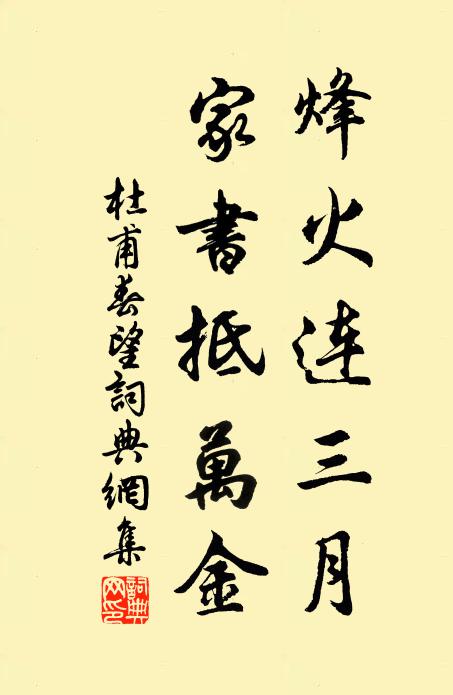 烽火连三月
家書抵萬金
杜甫春望詞典網集
詞典网印